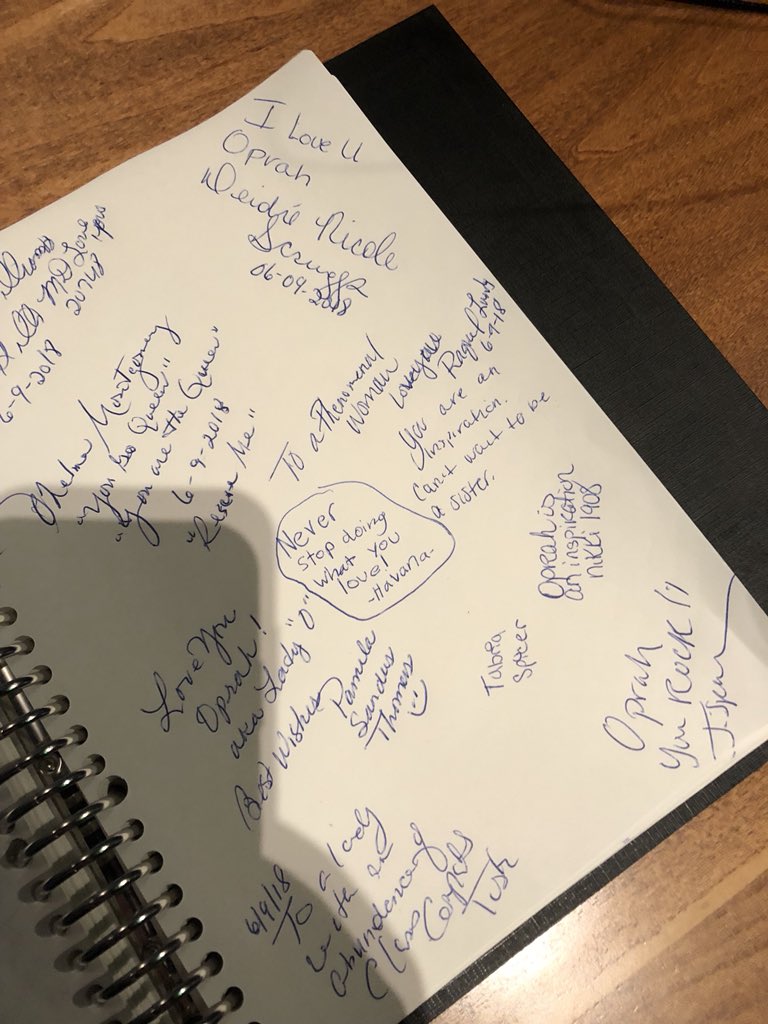 I Love U
Oprah
Deidre Nicole
Scruggs
06-09-2018
MD Love
20748
6-9-2018
Thelma Montgomery
"You Go Queen"
"You are the Queen"
6-9-2018
"Rescue Me"
To a Phenomenal
Woman
Love you
Raquel
6-9-18
You are an
inspiration.
Can't wait to be
a sister.
Never
stop doing
what you
love!
-Havana-
Oprah is
an inspiration
nikki 1908
Love You
Oprah!
aka Lady "O"
Best Wishes
Pamela
Sandus
Thomas
Tabria
Spicer
Oprah
You Rock!!
6/9/18
To a lady
with an
abundance of
Class
Tish